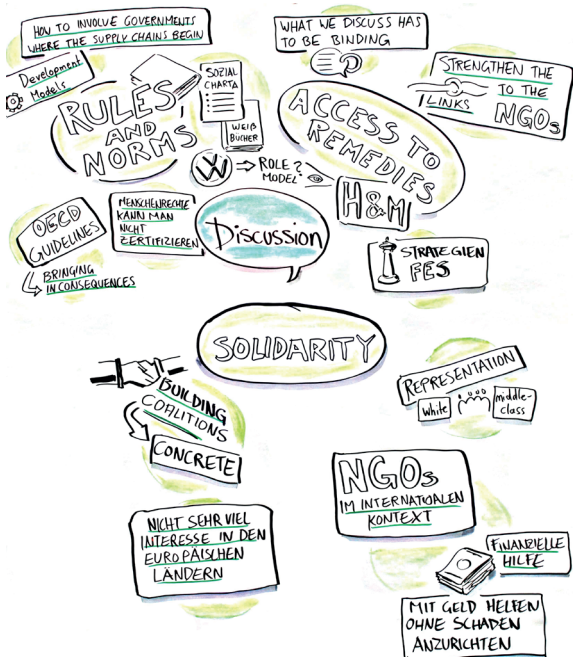 HOW TO INVOLVE GOVERNMENTS
WHERE THE SUPPLY CHAINS BEGIN
WHAT WE DISCUSS HAS
TO BE BINDING
Development
Models
RULES
AND
NORMS
SOZIAL
CHARTA
WEIß
BÜCHER
ACCESS TO
REMEDIES
STRENGTHEN THE
LINKS TO THE
NGOs
VW
ROLE ?
MODEL
H&M
OECD
GUIDELINES
BRINGING
IN CONSEQUENCES
MENSCHENRECHTE
KANN MAN
NICHT
ZERTIFIZIEREN
Discussion
STRATEGIEN
FES
SOLIDARITY
BUILDING
COALITIONS
CONCRETE
REPRESENTATION
white
middle-
class
NGOs
IM INTERNATIOALEN
KONTEXT
NICHT SEHR VIEL
INTERESSE IN DEN
EUROPÄISCHEN
LÄNDERN
FINANZIELLE
HILFE
MIT GELD HELFEN
OHNE SCHADEN
ANZURICHTEN